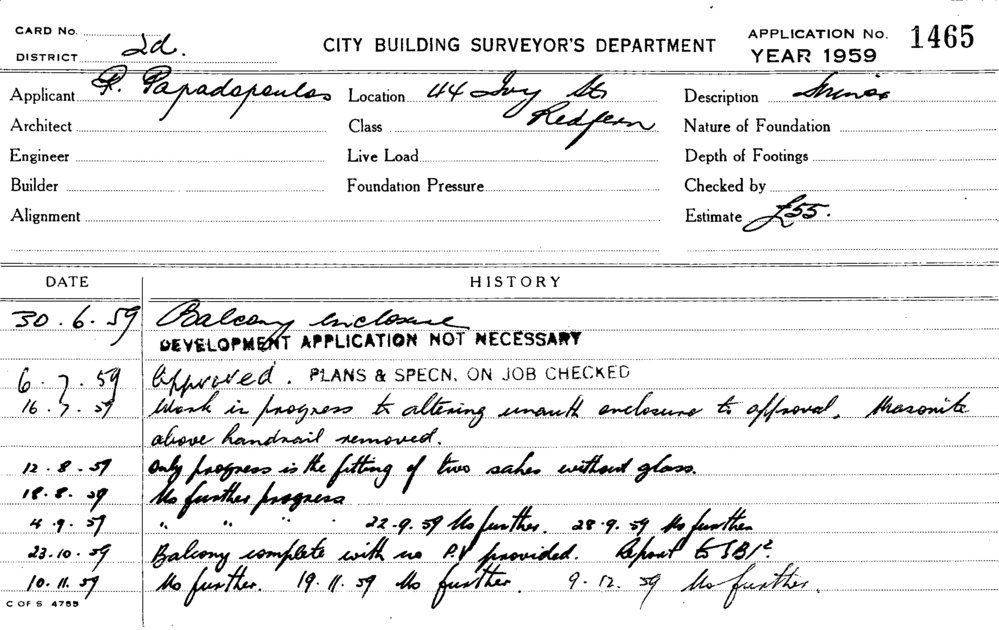 CARD No.
DISTRICT 2d.
CITY BUILDING SURVEYOR'S DEPARTMENT
APPLICATION No. 1465
YEAR 1959
Applicant P. Papadopoulos Location 44 Ivy St Redfern Description Minor
Architect Class Nature of Foundation
Engineer Live Load Depth of Footings
Builder Foundation Pressure Checked by
Alignment Estimate £55.
DATE HISTORY
30.6.59 Balcony enclosure
DEVELOPMENT APPLICATION NOT NECESSARY
6.7.59 Approved. PLANS & SPECN. ON JOB CHECKED
16.7.59 Work in progress to altering unauth enclosure to approval. Masonite
above handrail removed.
12.8.59 Only progress is the fitting of two sahes without glass.
18.8.59 No further progress
4.9.59 " " " 22.9.59 No further. 28.9.59 No further
23.10.59 Balcony complete with no P.V provided. Report to
10.11.59 No further. 19.11.59 No further 9.12.59 No further.
C OF S 4755